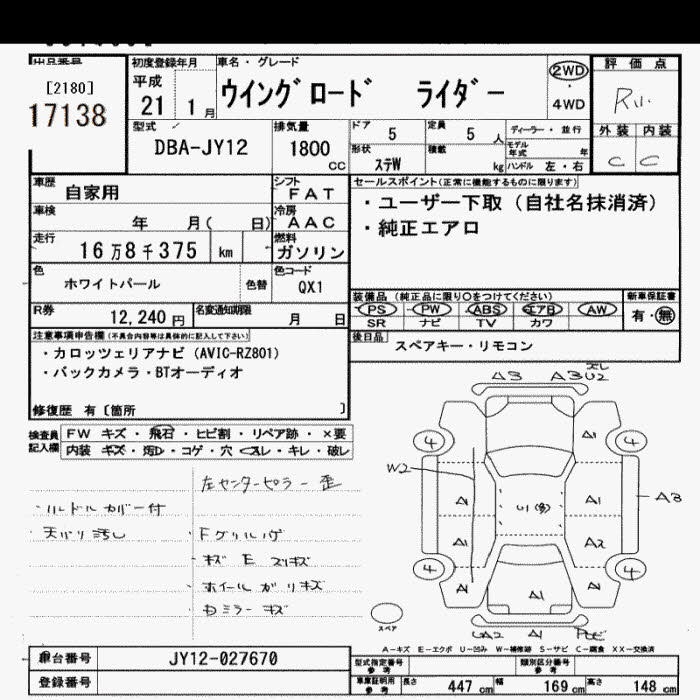 出品番号
[2180]
17138
初度登録年月
平成
21 1 月
車名・グレード
ウイングロード ライダー
2WD
・
4WD
評価点
R
外装 内装
C C
型式
DBA-JY12
排気量
1800
CC
ドア 5
定員 5 人
ディーラー・並行
形状 ステW
積載 kg
モデル年式 年
ハンドル 左・右
車歴 自家用
シフト FAT
車検 年 月( 日)
冷房 AAC
走行 16万8千375 km
燃料 ガソリン
色 ホワイトパール 色替
色コード QX1
R券 12,240 円
名変通知期限 月 日
セールスポイント(正常に機能するものに限ります)
・ユーザー下取(自社名抹消済)
・純正エアロ
装備品(純正品に限り○をつけてください)
新車保証書
PS PW ABS エアB AW
有・無
SR ナビ TV カワ
後日品 スペアキー・リモコン
注意事項申告欄(不具合内容等は具体的に記入して下さい)
・カロッツェリアナビ(AVIC-RZ801)
・バックカメラ・BTオーディオ
修復歴 有[箇所 ]
検査員記入欄
FW キズ・飛石・ヒビ割・リペア跡・×要
内装 キズ・汚れ・コゲ・穴・スレ・キレ・破レ
左センターピラー歪
・ハンドルカバー付
天バリ汚レ
・Fグリルハゲ
キズ E スリキズ
ホイールガリキズ
ミラーキズ
A3 A3 U2
4 A1 4
W2
A1 A1 A3
A1 A2
4 A1 A1 4
A1
A1
スペア
A-キズ E-エクボ U-凹み W-補修跡 S-サビ C-腐食 XX-交換済
車台番号 JY12-027670
登録番号
型式指定番号 参考
類別区分番号 参考
車庫証明用 参考
長さ 447 cm 幅 169 cm 高さ 148 cm